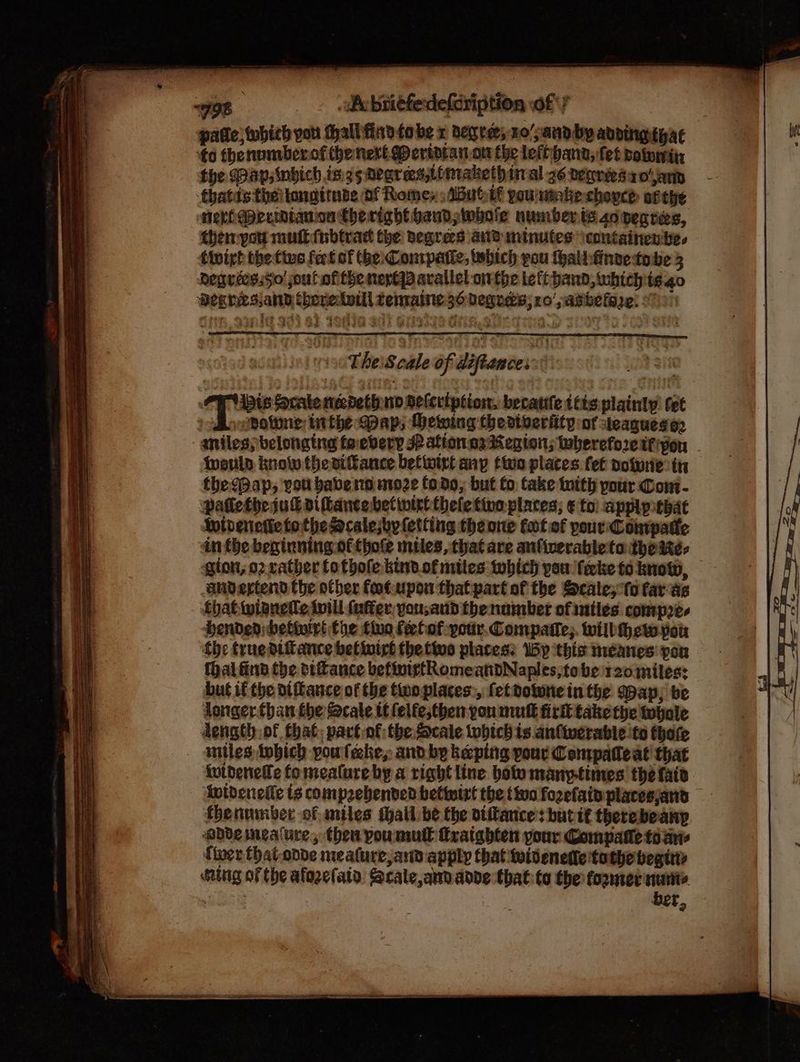 798 A briefe description of
passe, which you shall find to be 1 degrée, 10′, and by adding that
to the number of the next Meridian on the left hand, set downe in
the Map, which is 35 degrées, it maketh in al 36 degrées 10′, and
that is the longitude of Rome. But if you make choyce of the
next Meridian on the right hand, whose number is 40 degrées,
then you must subtract the degrées and minutes contained be-
twixt the two féet of the Compasse, which you shall finde to be 3
degrées, 50′, out of the next Parallel on the left hand, which is 40
degrées, and there will remaine 36 degrées, 10′, as before.
The Scale of distances.
This Scale néedeth no description, because it is plainly set
downe in the Map, shewing the diversity of leagues oꝛ
miles, belonging to every Nation oꝛ Region, wherefoꝛe if you
would know the distance betwixt any two places set downe in
the Map, you have no moꝛe to do, but to take with your Com-
passe the just distance betwixt these two places, & to apply that
widenesse to the Scale, by setting the one foot of your Compasse
in the beginning of those miles, that are answerable to the Re-
gion, oꝛ rather to those kind of miles which you séeke to know,
and extend the other foot upon that part of the Scale, so far as
that widnesse will suffer you, and the number of miles compꝛe-
hended betwixt the two féet of your Compasse, will shew you
the true distance betwixt the two places. By this meanes you
shal find the distance betwixt Rome and Naples, to be 120 miles:
but if the distance of the two places, set downe in the Map, be
longer than the Scale it selfe, then you must first take the whole
length of that part of the Scale which is answerable to those
miles which you séeke, and by kéeping your Compasse at that
widenesse to measure by a right line how many times the said
widenesse is compꝛehended betwixt the two foꝛesaid places, and
the number of miles shall be the distance: but if there be any
odde measure, then you must straighten your Compasse to an-
swer that odde measure, and apply that widenesse to the begin-
ning of the afoꝛesaid Scale, and adde that to the foꝛmer num-
ber,